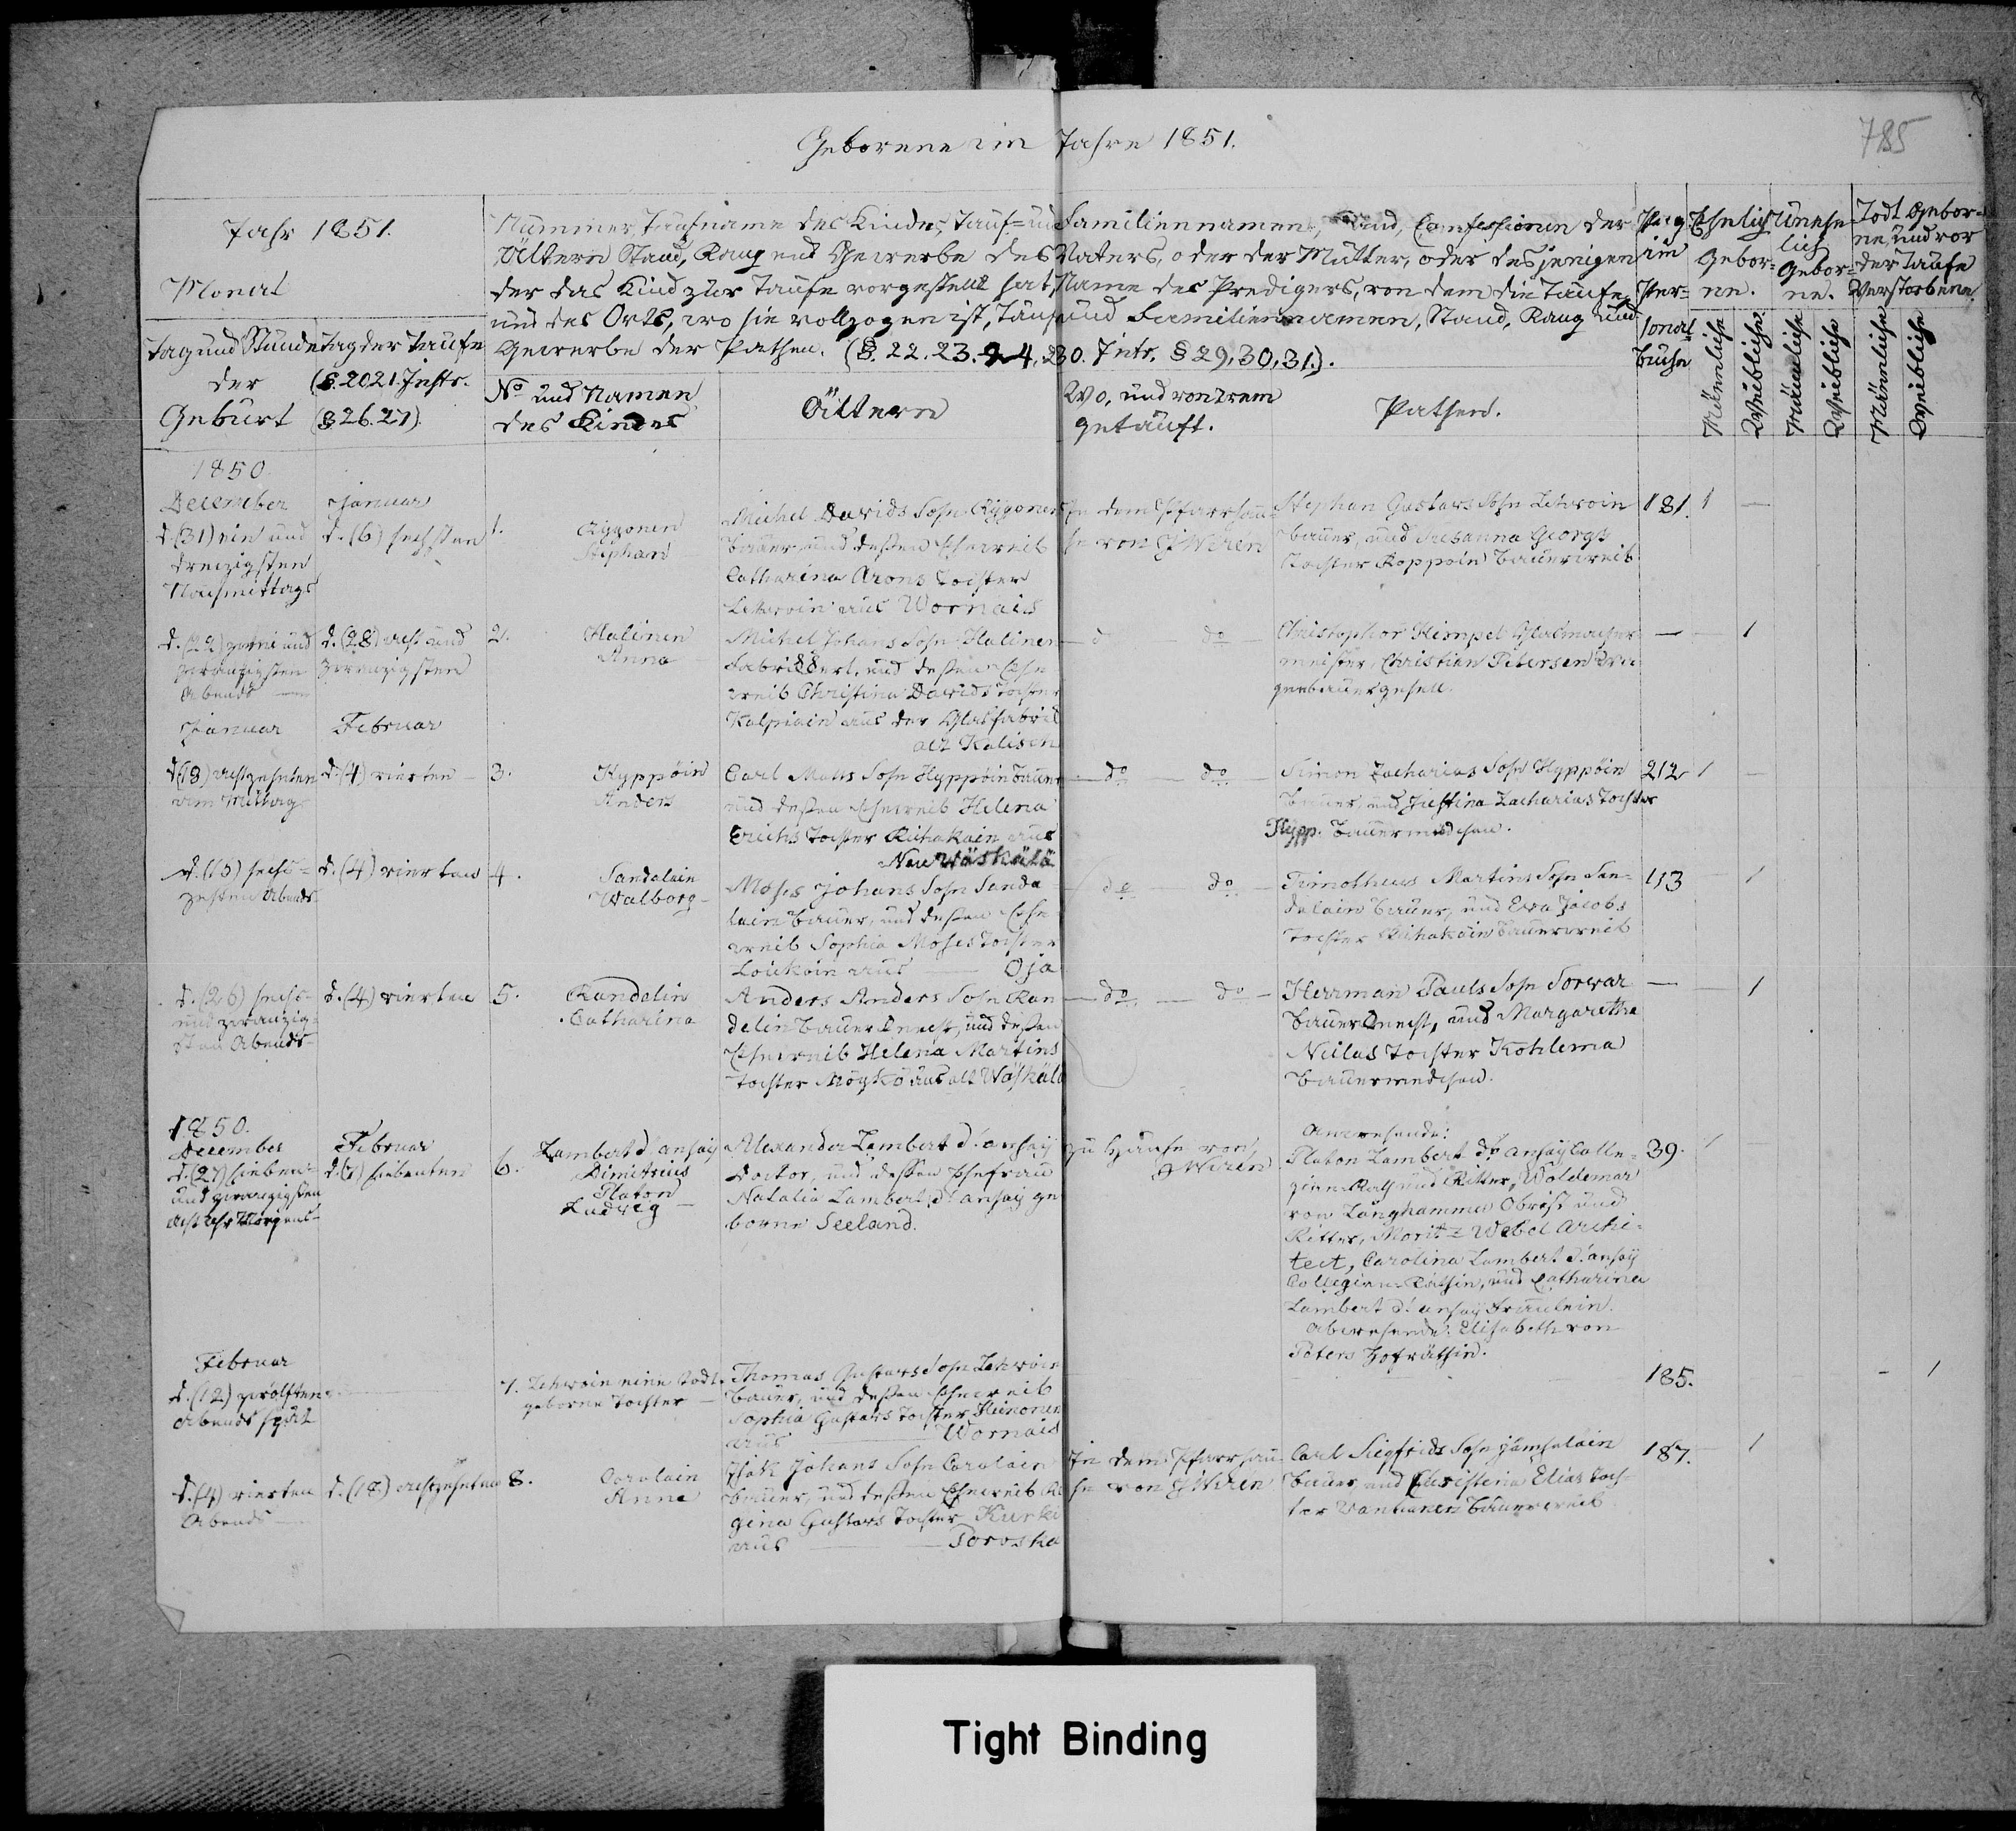 Geborene im Jahre 1851.
785
Jahr 1851.
Monat
Tag und Stunde der Geburt
Tag der Taufe
(§. 20.21. Instr.
§ 26.27).
Nummer, Taufname des Kindes, Tauf- und Familiennamen, Stand, Confessionen der Pag.
Ältern Stand, Rang und Gewerbe des Vaters, oder der Mutter, oder desjenigen im
der das Kind zur Taufe vorgestellt hat, Name des Predigers, von dem die Taufe Per=
und des Orts, wo sie vollzogen ist, Tauf und Familiennamen, Stand, Rang und sonal
Gewerbe der Pathen. (§. 22. 23. 24, 230. Instr. § 29, 30, 31.). buche
No und Namen
des Kindes
Ältern
Wo, und von wem
getauft.
Pathen.
Ehelich
Gebor=
ne.
Unehe
lich
Gebor=
ne.
Todt Gebor=
ne, und vor
der Taufe
Verstorbene.
Männliche
Weibliche
Männliche
Weibliche
Männliche
Weibliche
1850
December
d. (31) ein und
dreizigsten
Nachmittags
Januar
d. (6) sechsten
1.
Rygonen
Stephan
Michel Davids Sohn Rygonen
Bauer und dessen Eheweib
Catharina Arons Tochter
Lehwoin aus Wornais
In dem Pfarrhau=
se von Wiren
Stephan Gustavs Sohn Lehwoin
Bauer, und Susanna Georgs
Tochter Roppoin Bauerweib
181.
1
d. (22) zwei und
zwanzigsten
Abends
d. (28) acht und
zwanzigsten
2.
Halinen
Anna
Michel Johans Sohn Halinen
und dessen Ehe
weib Christina Davids Tochter
Kolpiain aus der Glasfabrik
alt Kalisch
do
Christopher Himpel Glasmacher
meister, Christian Petersen
gesell.
1
Januar
Februar
d. (18) achtzehnten
am Mittag
d. (4) vierten
3.
Hyppöin
Anders
Carl Matts Sohn Hyppöin Bauer
und dessen Eheweib Helena
Erichs Tochter Rihakain aus
Neu Wäskälä
do do
Simon Zacharias Sohn Hyppöin
Bauer, und Justina Zacharias Tochter
Hypp. Bauermedchen.
212
1
d. (16) sechs=
zehten Abends
d. (4) vierten
4.
Sandalain
Walborg
Moses Johans Sohn Sanda
lain Bauer, und dessen Ehe
weib Sophia Moses Tochter
Loukoin aus Oja
do do
Timotheus Martins Sohn San=
dalain Bauer, und Eva Jacobs
Tochter Rihakain Bauerweib
113
1
d. (26) sechs=
und zwanzig=
sten Abends
d. (4) vierten
5.
Randelin
Catharina
Anders Anders Sohn Ran
delin Bauerknecht, und dessen
Eheweib Helena Martins
Tochter Möykö aus alt Wäskälä
do do
Herrman Pauls Sohn Sorwar
Bauerknecht, und Margaretha
Niilas Tochter Kohlema
Bauermedchen.
1
1850.
December
d. (27) sieben=
und zwanzigsten
acht Uhr Morgens
Februar
d. (7) siebenten
6.
Lambert d'ansay
Dimitrius
Platon
Ludvig
Alexander Lambert d'ansay
Doctor, und dessen Ehefrau
Natalia Lambert d'ansay ge
borne Seeland.
zu Hause von
Wiren
Anwesende:
Platon Lambert d'ansay Colle=
gien-Rath und Ritter, Woldemar
von Langhammer Obrist und
Ritter, Moritz Webel Archi=
tect, Carolina Lambert d'ansay
Collegien-Räthin, und Catharina
Lambert d'ansay Fraulein.
Abwesende: Elisabeth von
Peters Hofräthin.
39.
1
Februar
d. (12) zwölften
Abends spät
7. Lehwoin eine todt
geborne Tochter
Thomas Gustavs Sohn Lehwoin
Bauer, und dessen Eheweib
Sophia Gustavs Tochter Heinonen
aus Wornais
185.
1
d. (4) vierten
Abends
d. (18) achtzehnten
8.
Corolain
Anna
Isak Johans Sohn Corolain
Bauer, und dessen Eheweib Re
gina Gustavs Tochter Kurki
aus Toroska
In dem Pfarrhau
se von Wiren
Carl Siegfrids Sohn Jämselain
Bauer und Christina Elias Toch=
ter Vantunen Bauerweib
187.
1
Tight Binding